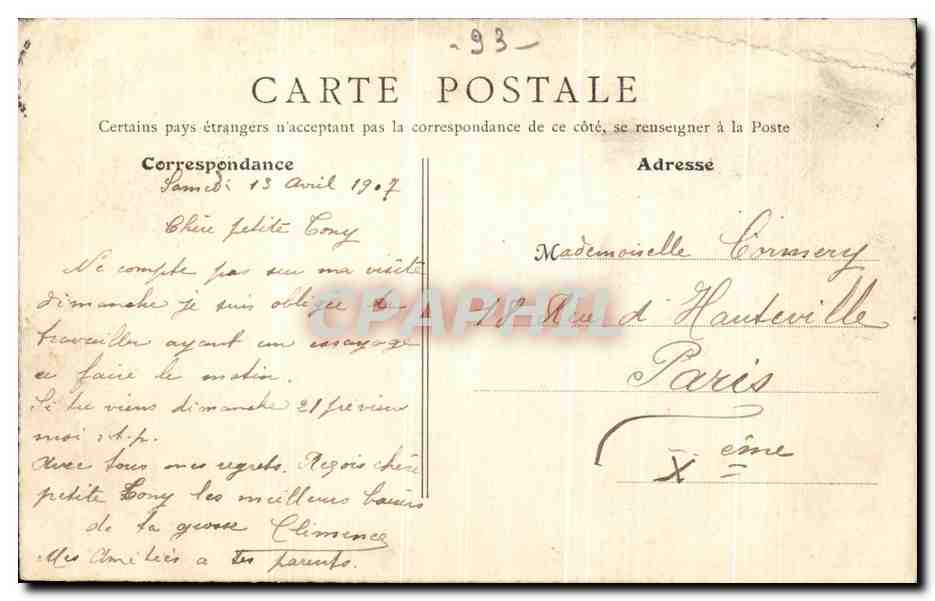 - 93 -
CARTE POSTALE
Certains pays étrangers n'acceptant pas la correspondance de ce côté, se renseigner à la Poste
Correspondance
Samedi 13 Avril 1907
Chère petite Tony
Ne compte pas sur ma visite
dimanche je suis obligée de
travailler ayant un essayage
a faire le matin.
Si tu viens dimanche 21 previen
moi s.t.p.
Avec tous mes regrets. Reçois chère
petite Tony les meilleurs baisers
de ta grosse Clémence
Mes Amitiés a tes parents.
Adresse
Mademoiselle Cormery
18 Rue d'Hauteville
Paris
X ème
CPAPHIL